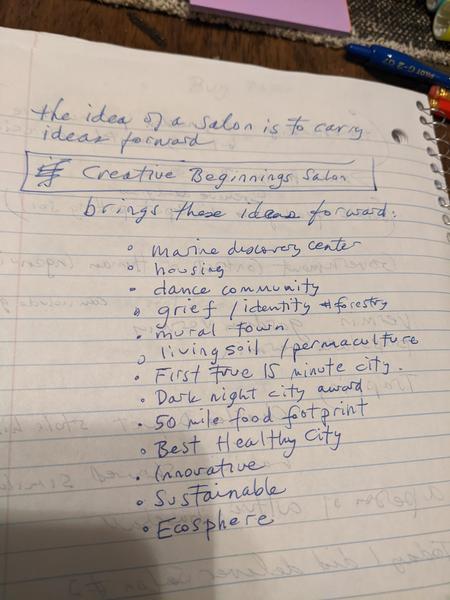 the idea of a salon is to carry
ideas forward
Creative Beginnings Salon
brings these ideas forward:
• marine discovery center
• housing
• dance community
• grief / identity forestry
• mural town
• living soil / permaculture
• First true 15 minute city.
• Dark night city award
• 50 mile food footprint
• Best Healthy City
• Innovative
• Sustainable
• Ecosphere